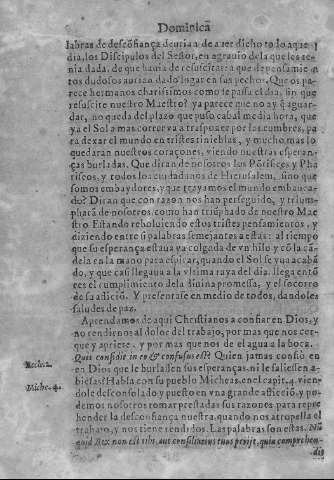 Dominica
labras de descõfiança deuriã de auer dicho todo aque
dia, los Discipulos del Señor, en agrauio de la que les te-
nia dada, de que hauia de resuscitar: a que de pensamiẽ
tos dudosos aurian dado lugar en sus pechos. Que os pa-
rece hermanos charissimos como se passa el dia, sin que
resuscite nuestro Maestro? ya parece que no ay q̃ aguar-
dar, no queda del plazo que puso cabal media hora, que
ya el Sol a mas correr va a trasponer por los cumbres, pa
ra dexar el mundo en tristes tinieblas, y mucho mas lo
quedaran nuestros coraçones, viendo nuestras esperan-
ças burladas. Que diran de nosotros los Põtifices, y Pha
riseos, y todos los ciudadanos de Hierusalem, sino que
somos embaydores, y que trayamos el mundo embauca-
do? Diran que con razon nos han perseguido, y trium-
pharã de nosotros, como han triũphado de nuestro Mae
stro. Estando reboluiendo estos tristes pensamientos, y
diziendo entre si palabras semejantes a estas: al tiempo
que su esperança estaua ya colgada de vn hilo y cõ la cã-
dela en la mano para espirar, quando el Sol se yua acabã
do, y que casi llegaua a la vltima raya del dia, llega entõ
ces el cumplimiento de la diuina promessa, y el socorro
de su aflictiõ. Y presentase en medio de todos, dandoles
saludes de paz.
Aprendamos de aqui Christianos a confiar en Dios, y
no rendirnos al dolor del trabajo, por mas que nos cer-
que y apriete, y por mas que nos de el agua a la boca.
Eccles. 2.
Quis confidit in eo & confusus est? Quien jamas confiò en
en Dios que le burlassen sus esperanças, ni le saliessen a-
Miche. 4.
biessas? Habla con su pueblo Micheas, en el capit. 4. vien-
dole desconsolado y puesto en vna grande aflictiõ, y po-
demos nosotros tomar prestadas sus razones para repre
hender la desconfiança nuestra, quando nos atropella el
trabajo, y nos tiene rendidos. Las palabras son estas. Nũ
quid Rex non est tibi, aut consiliarius tuus perijt, quia comprehen-
dit